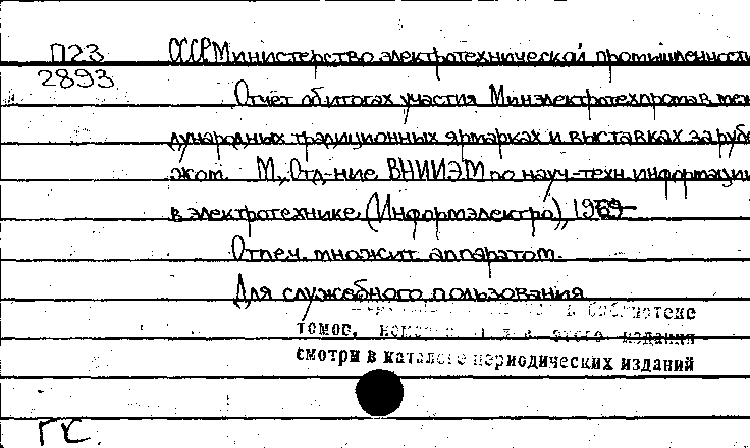 П23 СССР Министерство электротехнической промышленности
2893
Отчет об итогах участия Минэлектротехпрома в меж
дународных традиционных ярмарках и выставках за рубе
жом. М., Отд-ние ВНИИЭМ по науч-техн. информации
в электротехнике (Информэлектро), 1969-
Отпеч. множит. аппаратом.
Для служебного пользования
в библиотеке
томов, этого издания
смотри в каталоге периодических изданий
ГК